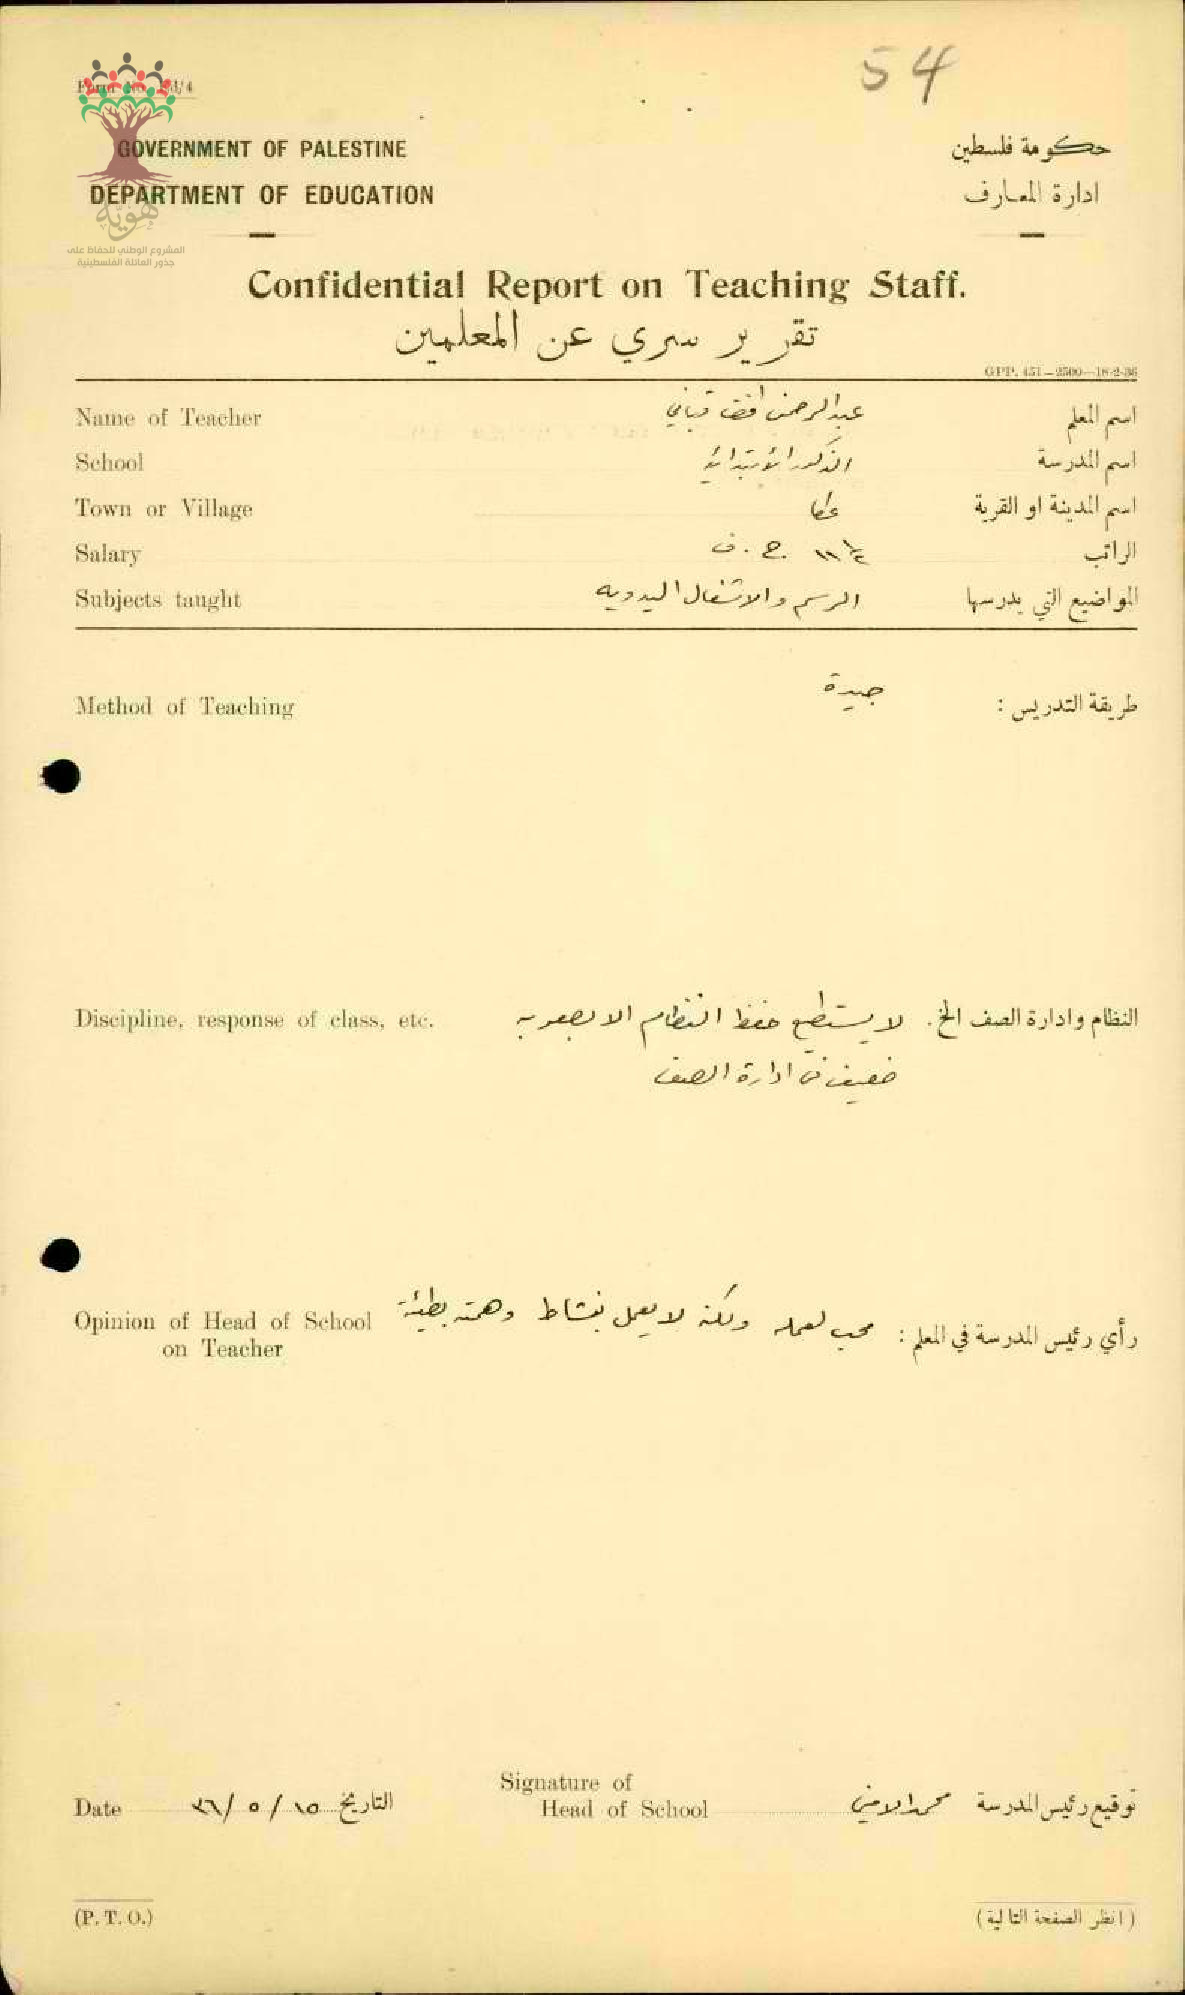 54
Form No. Ed/4
GOVERNMENT OF PALESTINE
حكومة فلسطين
DEPARTMENT OF EDUCATION
ادارة المعارف
هوية
المشروع الوطني للحفاظ على
جذور العائلة الفلسطينية
Confidential Report on Teaching Staff.
تقرير سري عن المعلمين
GPP. 451—2500—18-2-36
Name of Teacher عبدالرحمن افندي قباني اسم المعلم
School الذكور الأبتدائية اسم المدرسة
Town or Village عكا اسم المدينة او القرية
Salary ج . ف الراتب
Subjects taught الرسم والاشغال اليدويه المواضيع التي يدرسها
Method of Teaching جيدة طريقة التدريس :
Discipline, response of class, etc. لا يستطيع حفظ النظام الا بصعوبه النظام وادارة الصف الخ.
ضعيف في ادارة الصف
Opinion of Head of School محب لعمله ولكنه لا يعمل بنشاط وهمته بطيئة رأي رئيس المدرسة في المعلم :
on Teacher
Signature of
Date ٣٦/ ٥ / ١٥ التاريخ Head of School محمد الامين توقيع رئيس المدرسة
(P. T. O.) (انظر الصفحة التالية)